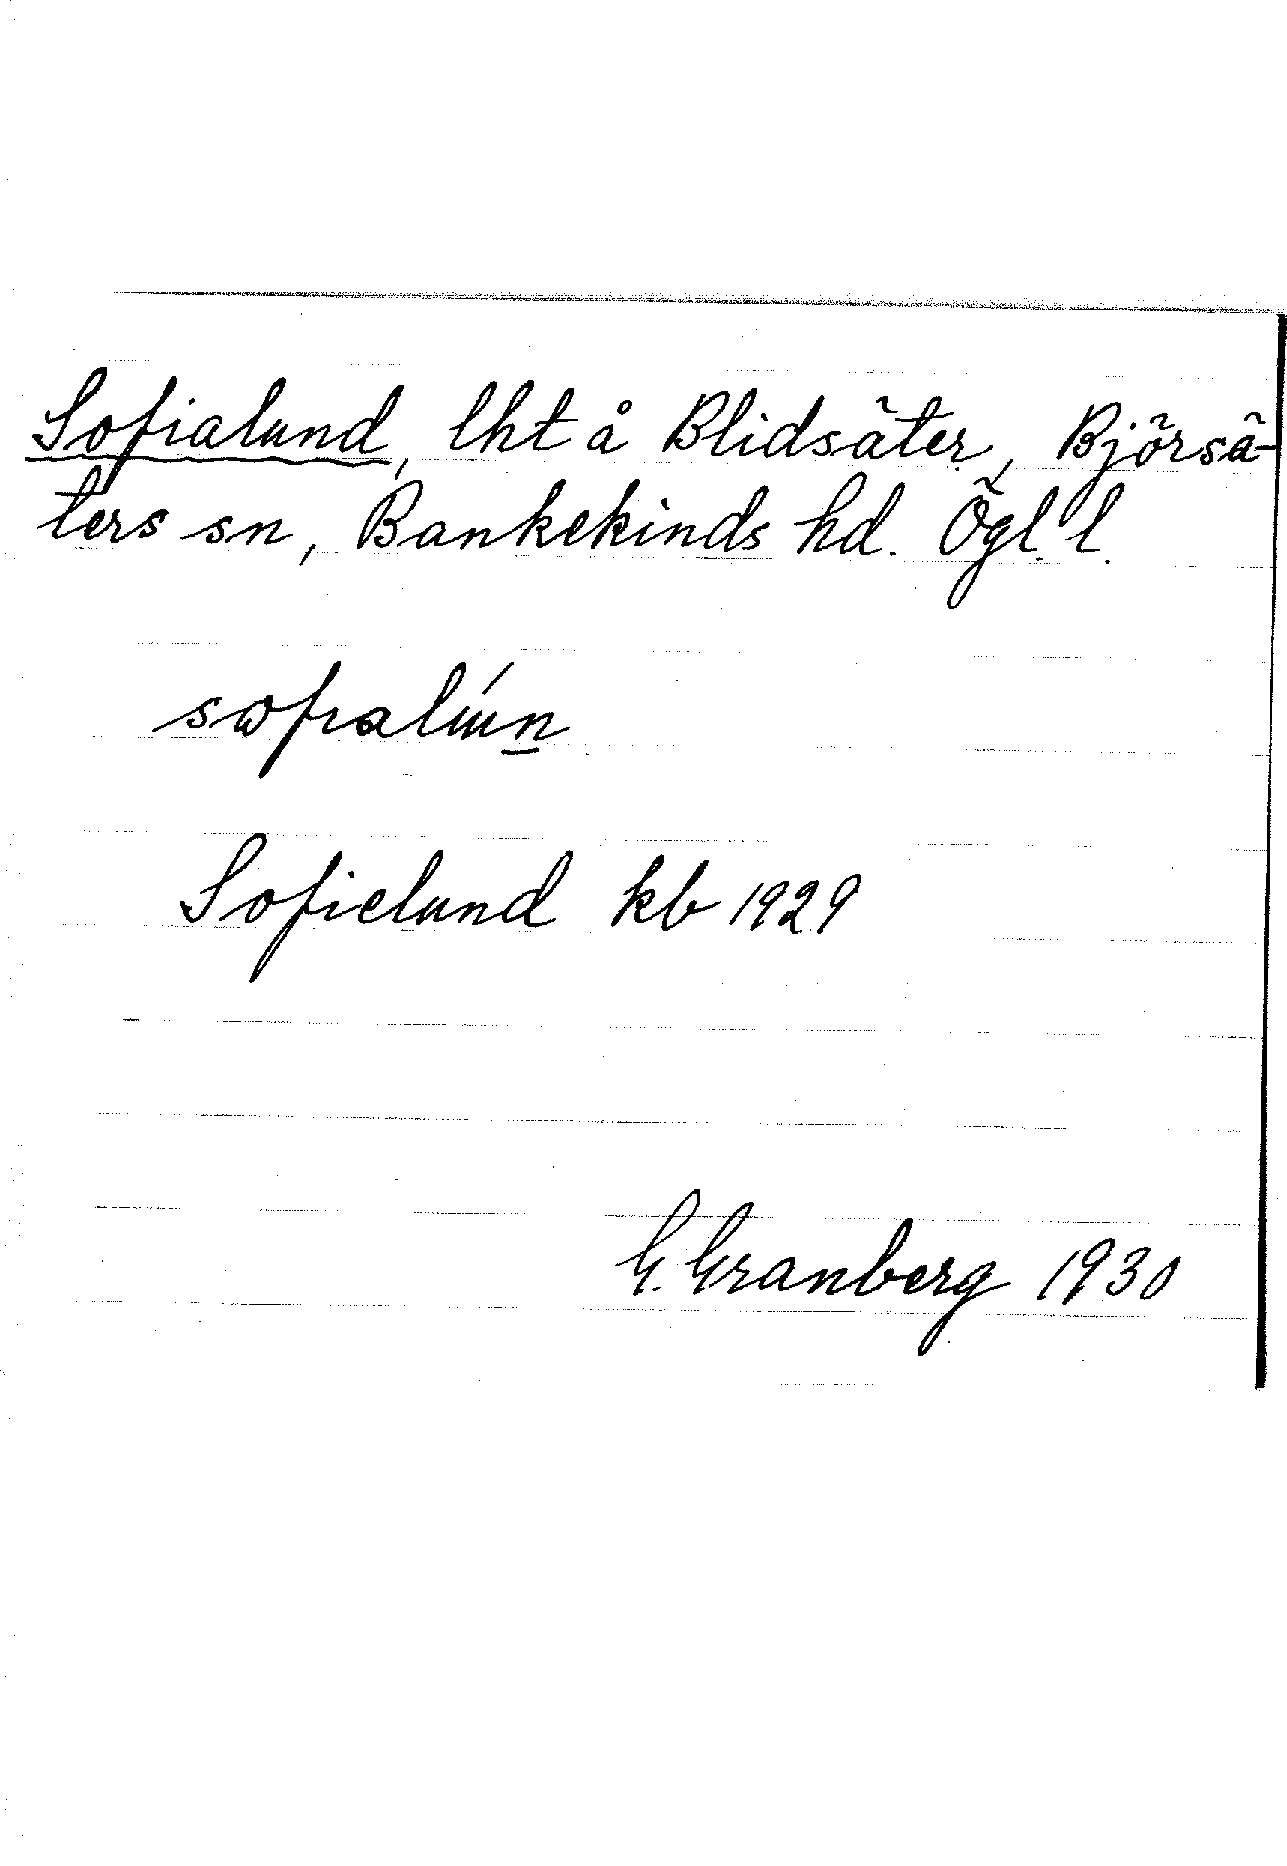 Sofialund, lht å Blidsäter, Björsä-
ters sn, Bankekinds hd. Ögl. l.
sωfιalún
Sofielund kb 1929
G. Granberg 1930